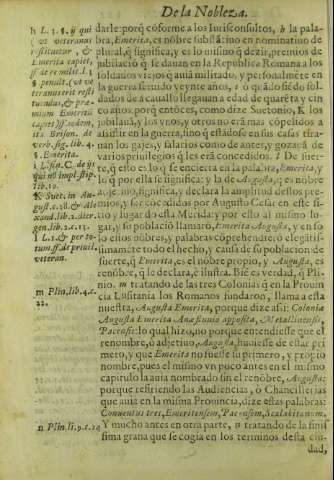 De la Nobleza.
darle: porq̃ cõforme a los Iurisconsultos, h la pala-
bra, Emerita, es nõbre substãtiuo en nominatiuo de
plural, q̃ significa, y es lo mismo q̃ dezir, premios de
jubilaciõ q̃ se dauan en la Republica Romana a los
soldados viejos q̃ auiã militado, y personalmẽte en
la guerra seruido veynte años, i o quãdo siẽdo sol-
dados de a cauallo llegauan a edad de quarẽta y cin
co años, porq̃ entõces, como dize Suetonio, K los
jubilauã, y los vnos, y otros no erã mas cõpelidos a
assistir en la guerra, sino q̃ estãdose en sus casas tira-
uan los gajes, y salarios como de antes, y gozauã de
varios priuilegios q̃ les erã concedidos. l De suer-
te, q̃ esto es lo q̃ se encierra en la palabra, Emerita, y
lo q̃ por ella se significa: y la de Augusta, q̃ es nõbre
significa, y declara la amplitud destos pre-
mios, y ser cõcedidos por Augusto Cesar en este si-
tio y lugar do esta Merida: y por esto al mismo lu-
gar, y su poblaciõ llamarõ, Emerita Augusta, y en so
lo estos nõbres, y palabras cõprehendierõ elegãtis-
simamẽte todo el hecho, y causas de su poblacion: de
suerte, q̃ Emerita, es el nõbre propio, y Augusta, es
renõbre, q̃ le declara, è ilustra. Biẽ es verdad, q̃ Pli-
nio. m tratando de las tres Colonias q̃ en la Prouin
cia Lusitania los Romanos fundaron, llama a esta
nuestra, Augusta Emerita, porque dize assi: Colonia
Augusta Emerita Anæ fluuio apposita, Metallinensis,
Pacensis: lo qual hizo, no porque entendiesse que el
renombre, ò adjetiuo, Augusta, huuiesse de estar pri
mero, y que Emerita no fuesse su primero, y propio
nombre, pues el mismo vn poco antes en el mismo
capitulo la auia nombrado sin el renõbre, Augusta:
porque refiriendo las Audiencias, ò Chancillerias
que auia en la misma Prouincia, dize estas palabras:
Conuentus tres, Emeritensem, Pacensem, Scalabitanum.
Y mucho antes en otra parte, n tratando de la finis
sima grana que se cogia en los terminos desta ciu-
dad,
h L. 3. §. ij qui
ve veteranus
restituitur, &
Emerita capies,
ff. de re milit. l. 3
i L. fin. C. de ijs
qui nõ impl. stip.
lib. 10.
K Suet. in Au-
gust. c. 38. & Ale
xand. lib. 2. dier.
gen. lib. 2. c. 13.
l L. 1. & per to-
tum, ff. de priuil.
veteran.
m Plin. lib. 4. c.
22.
n Plin. li. 9. c. 14